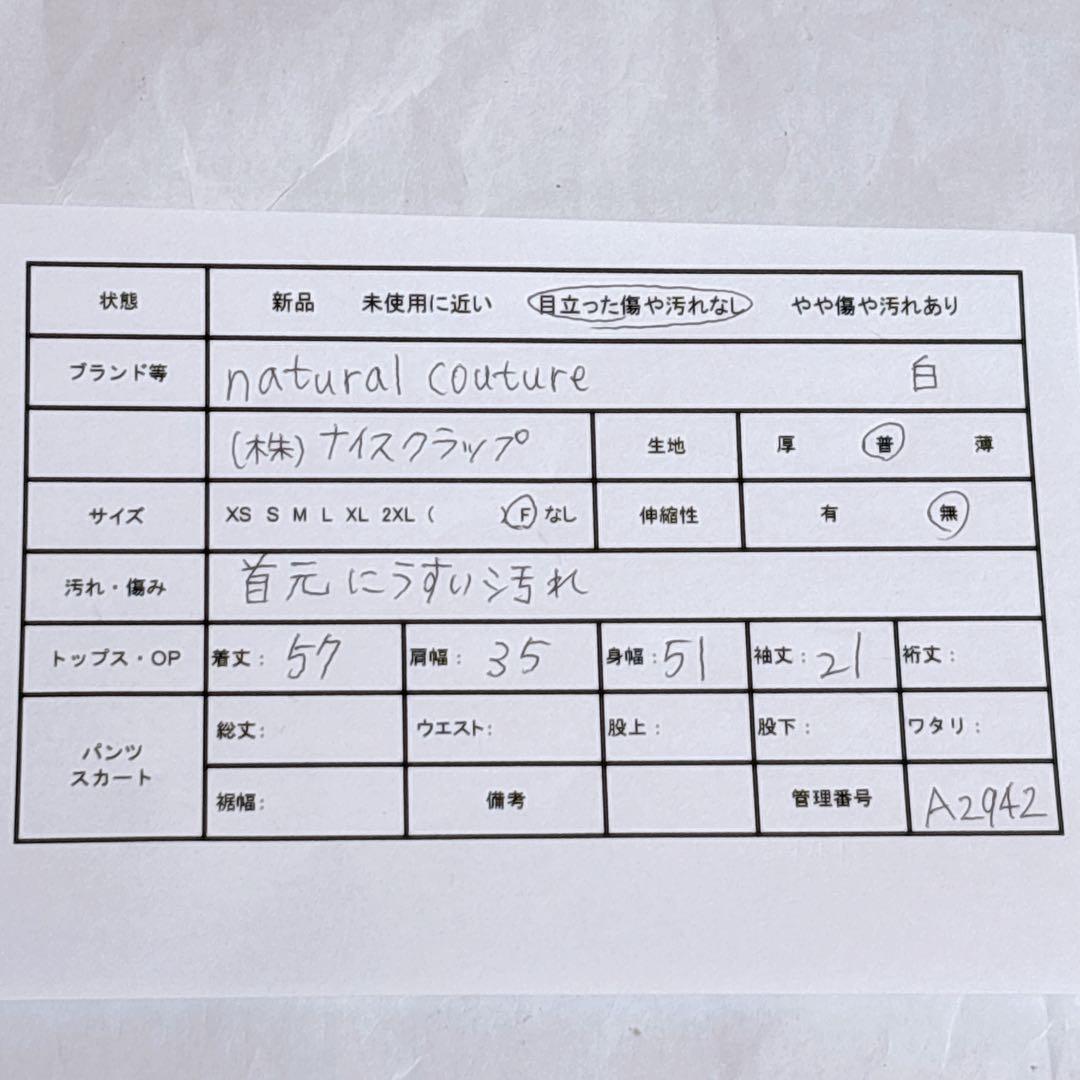 状態 新品 未使用に近い 目立った傷や汚れなし やや傷や汚れあり
ブランド等 natural couture 白
(株)ナイスクラップ 生地 厚 普 薄
サイズ XS S M L XL 2XL ( )F なし 伸縮性 有 無
汚れ・傷み 首元にうすい汚れ
トップス・OP 着丈: 57 肩幅: 35 身幅: 51 袖丈: 21 裄丈:
パンツ スカート 総丈: ウエスト: 股上: 股下: ワタリ:
裾幅: 備考 管理番号 A2942